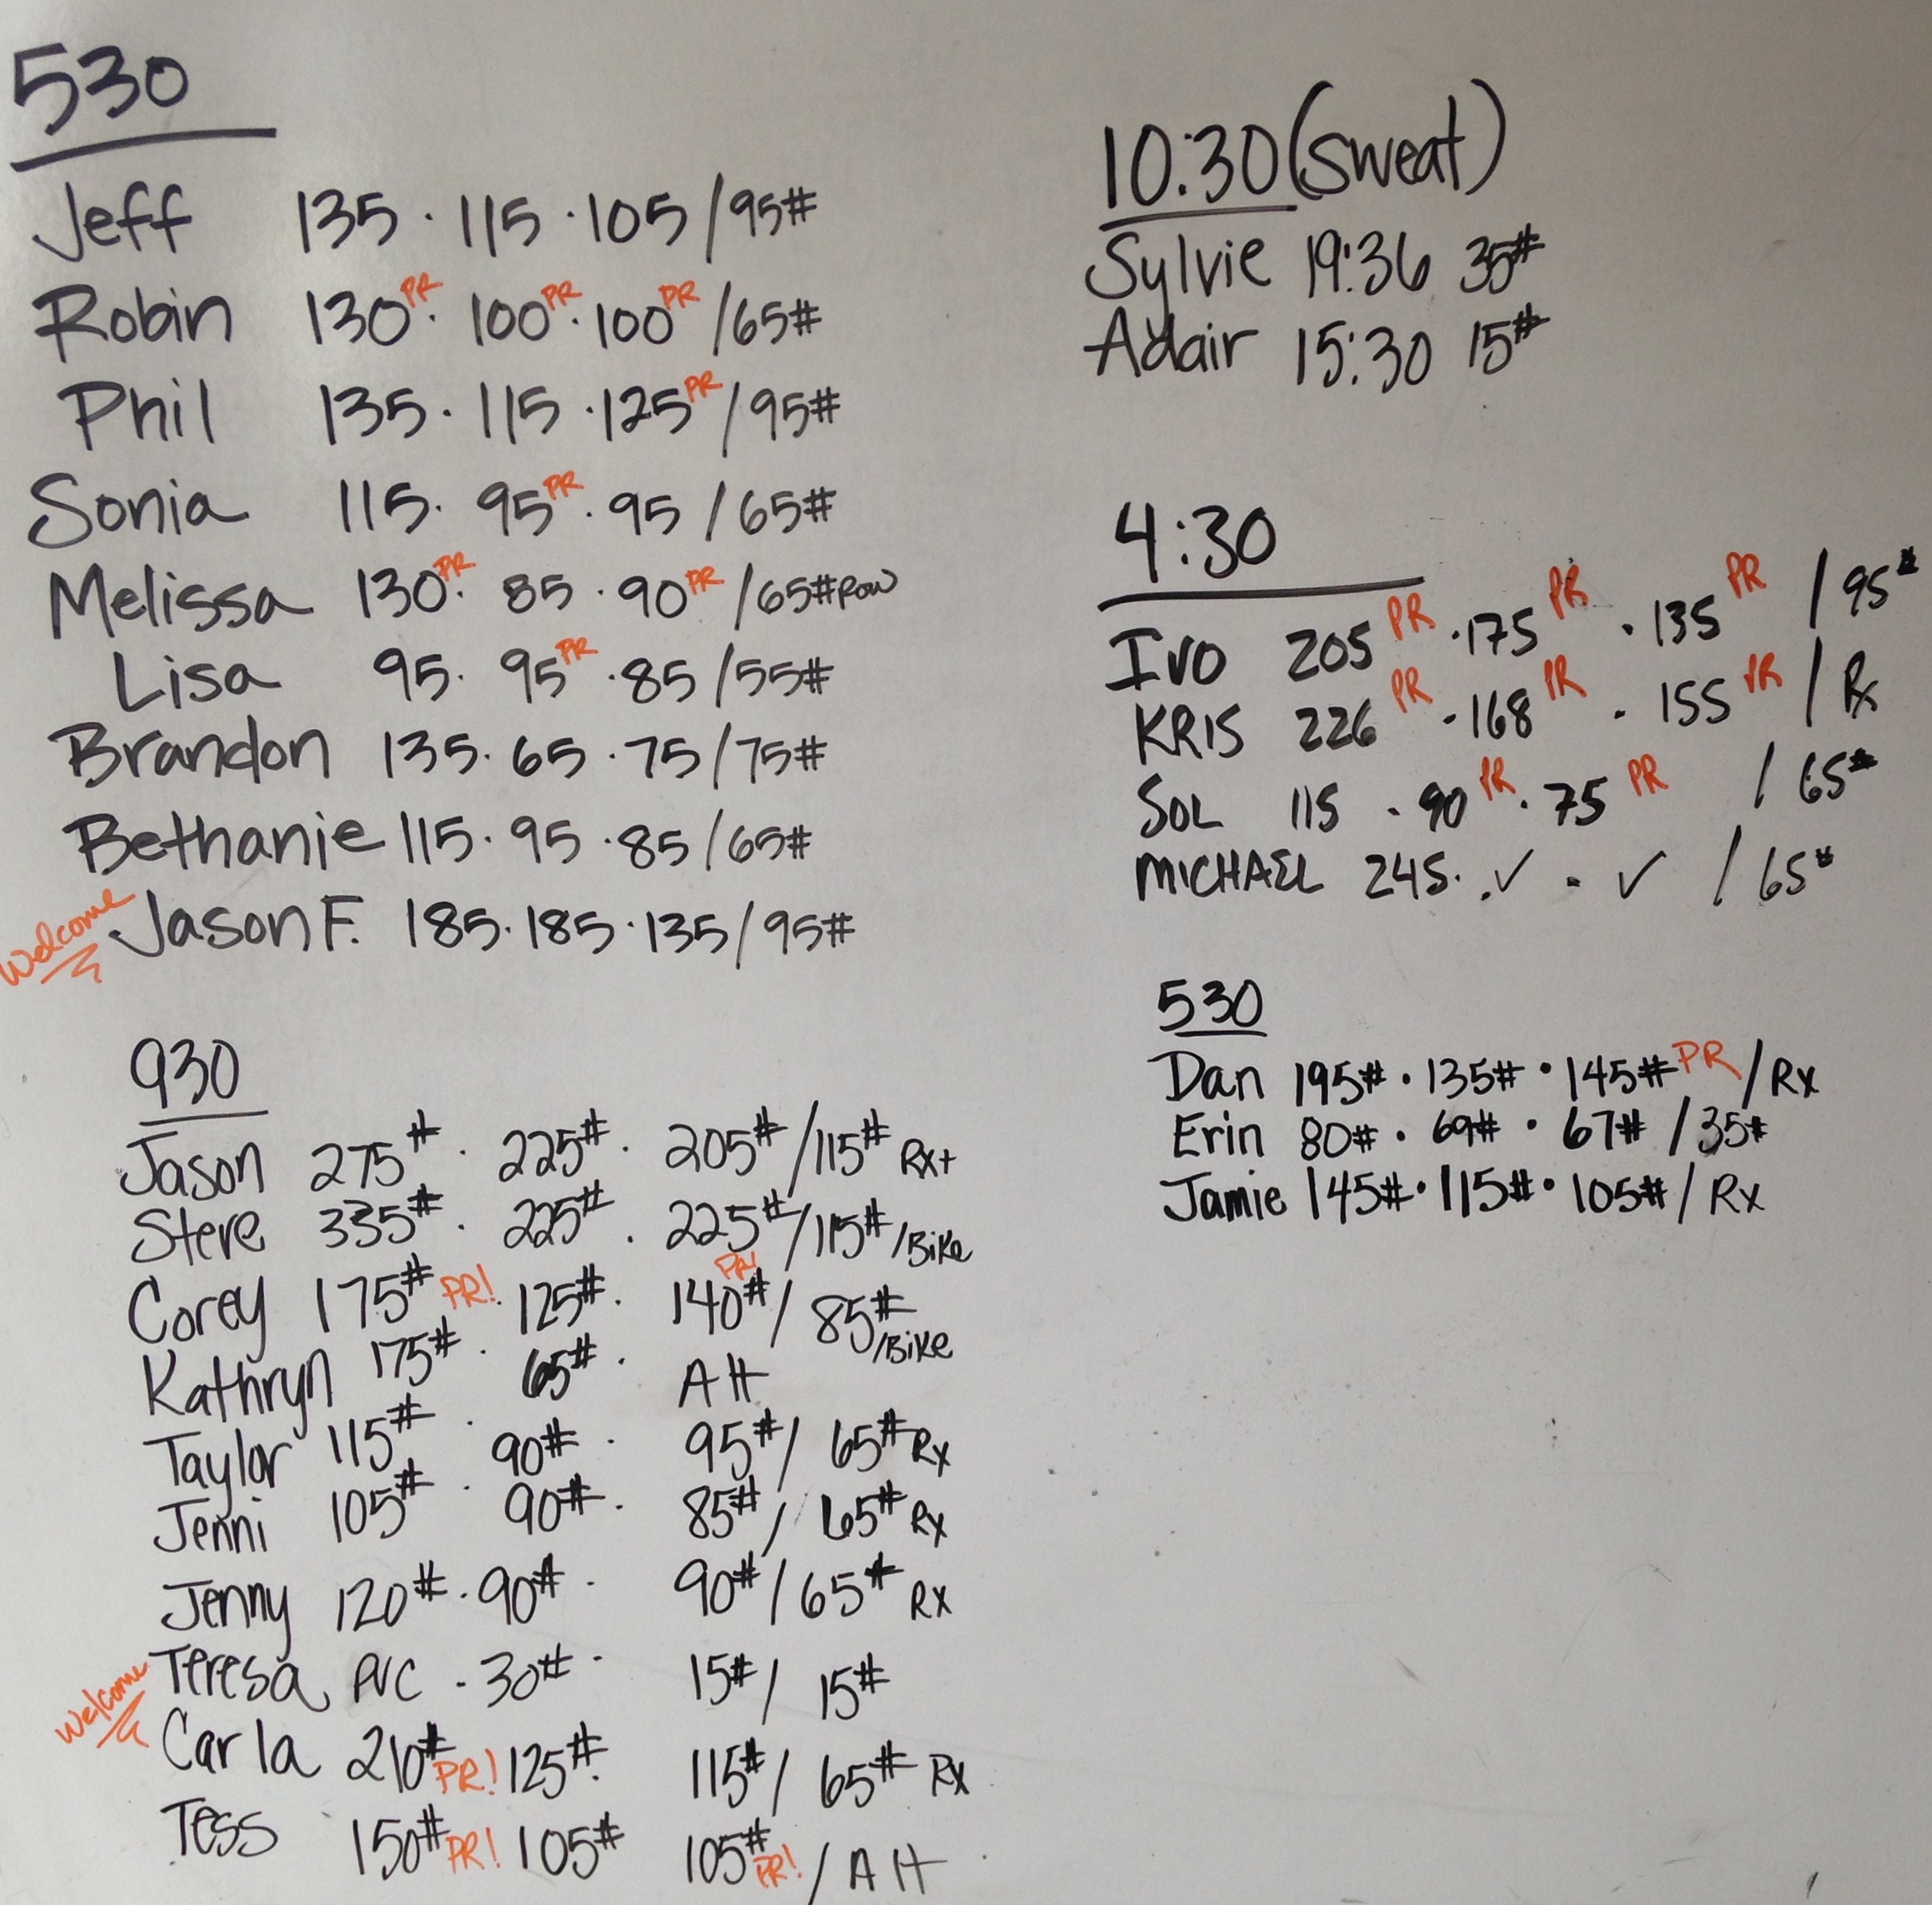 530
Jeff 135 · 115 · 105 / 95#
Robin 130 PR · 100 PR · 100 PR / 65#
Phil 135 · 115 · 125 PR / 95#
Sonia 115 · 95 PR · 95 / 65#
Melissa 130 PR · 85 · 90 PR / 65# Row
Lisa 95 · 95 PR · 85 / 55#
Brandon 135 · 65 · 75 / 75#
Bethanie 115 · 95 · 85 / 65#
Welcome Jason F. 185 · 185 · 135 / 95#
930
Jason 275# · 225# · 205# / 115# Rx+
Steve 335# · 225# · 225# / 115# / Bike
Corey 175# PR! · 125# · 140# PR! / 85# / Bike
Kathryn 175# · 65# · Alt
Taylor 115# · 90# · 95# / 65# Rx
Jenni 105# · 90# · 85# / 65# Rx
Jenny 120# · 90# · 90# / 65# Rx
Welcome Teresa PVC · 30# · 15# / 15#
Carla 210# PR! 125# · 115# / 65# Rx
Tess 150# PR! 105# 105# PR! / Alt
10:30 (Sweat)
Sylvie 19:36 35#
Adair 15:30 15#
4:30
Ivo 205 PR · 175 PR · 135 PR / 95#
KRIS 226 PR · 168 PR · 155 PR / Rx
SOL 115 · 90 PR · 75 PR / 65#
MICHAEL 245 · ✓ · ✓ / 65#
530
Dan 195# · 135# · 145# PR / Rx
Erin 80# · 69# · 67# / 35#
Jamie 145# · 115# · 105# / Rx